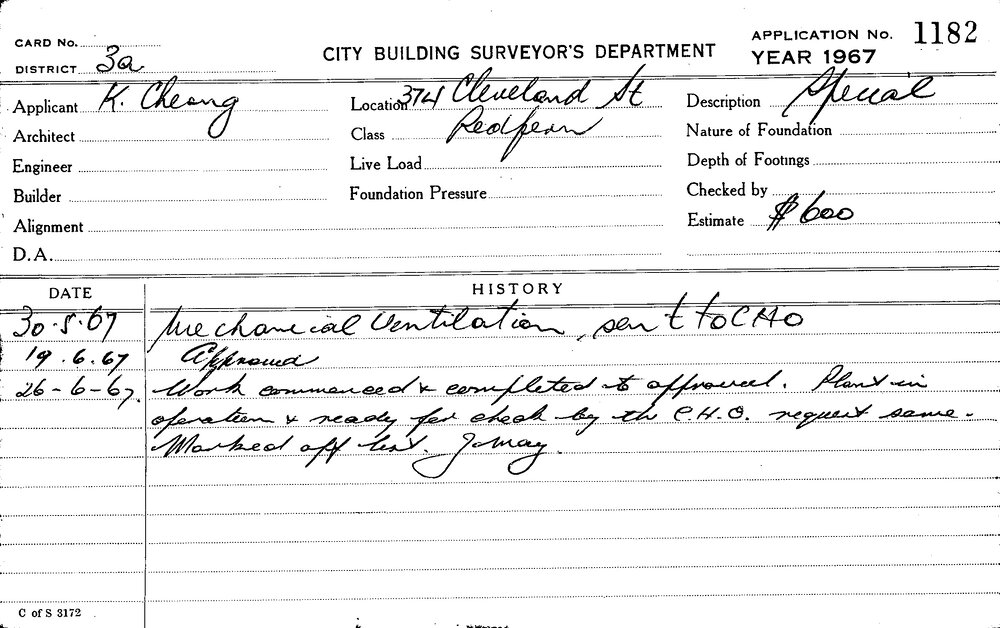 CARD No.
CITY BUILDING SURVEYOR'S DEPARTMENT
APPLICATION No. 1182
DISTRICT 3a
YEAR 1967
Applicant K. Cheong
Location 374 Cleveland St
Description Special
Architect
Class Redfern
Nature of Foundation
Engineer
Live Load
Depth of Footings
Builder
Foundation Pressure
Checked by
Alignment
Estimate $600
D.A.
DATE HISTORY
30.5.67 Mechanical Ventilation, sent to CHO
19.6.67 Approved
26-6-67. Work commenced & completed to approval. Plant in
operation & ready for check by the C.H.O. request same.
Marked off list. J. May.
C of S 3172